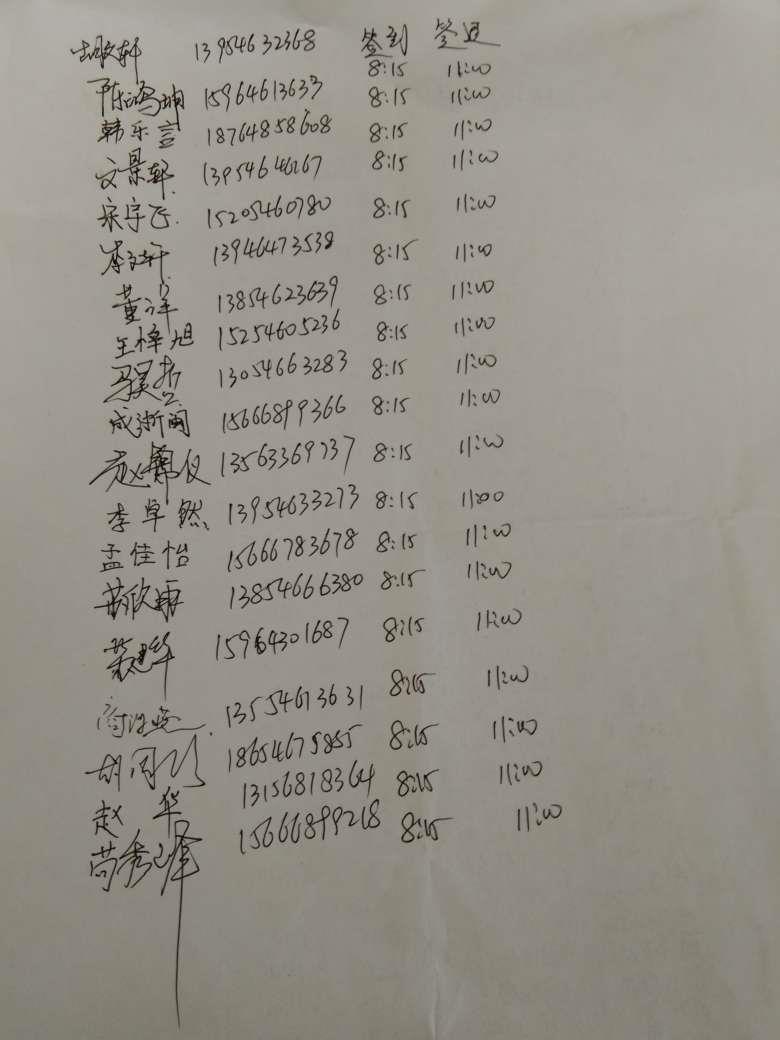 轩 13954632368 签到 签退
8:15 11:00
陈鸿坤 15964613633 8:15 11:00
韩乐言 18764858608 8:15 11:00
文景轩 13954646267 8:15 11:00
宋宇飞 15205460780 8:15 11:00
李文轩 13946473538 8:15 11:00
董洋 13854623639 8:15 11:00
王梓旭 15254605236 8:15 11:00
冯昊哲 13054663283 8:15 11:00
成浙闽 15666899366 8:15 11:00
赵 仪 13563369737 8:15 11:00
李卓然 13954633273 8:15 11:00
孟佳怡 15666783678 8:15 11:00
苟欣康 13854666380 8:15 11:00
15964301687 8:15 11:00
商 13554613631 8:15 11:00
胡 18654675855 8:15 11:00
赵华 13156818364 8:15 11:00
苟秀峰 15666899218 8:15 11:00